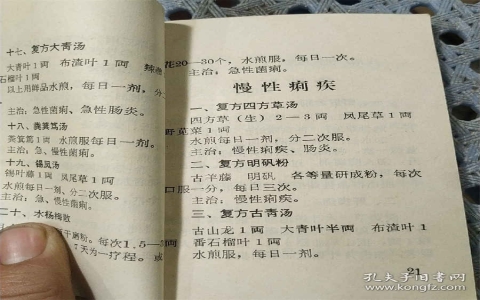 十七、复方大青汤
大青叶1両 布渣叶1両
石榴叶1両
以上用鲜品水煎，每日一剂，分二
主治：急性菌痢、急性肠炎。
十八、粪箕笃汤
粪箕篤1両 水煎服每日一剂。
主治：急、慢性菌痢。
十九、锡凤汤
锡叶藤1両 凤尾草1両
水煎服每日一剂、分二次服。
主治：急、慢性菌痢。
二十、水杨梅散
干磨粉。每次1.5—3
天为一疗程。或
花20—30个，水煎服，每日一次。
主治：急性菌痢。
慢性痢疾
一、复方四方草汤
四方草（生）2—3両 凤尾草1両
苋菜1両
水煎服每日一剂，分二次服。
主治：慢性痢疾、肠炎。
二、复方明矾粉
古羊藤 明矾 各等量研成粉，每次
口服一分，每日三次。
主治：慢性痢疾。
三、复方古青汤
古山龙1両 大青叶半両 布渣叶1両
番石榴叶1両
水煎服，每日一剂。
21
孔夫子旧书网
www.kongfz.com